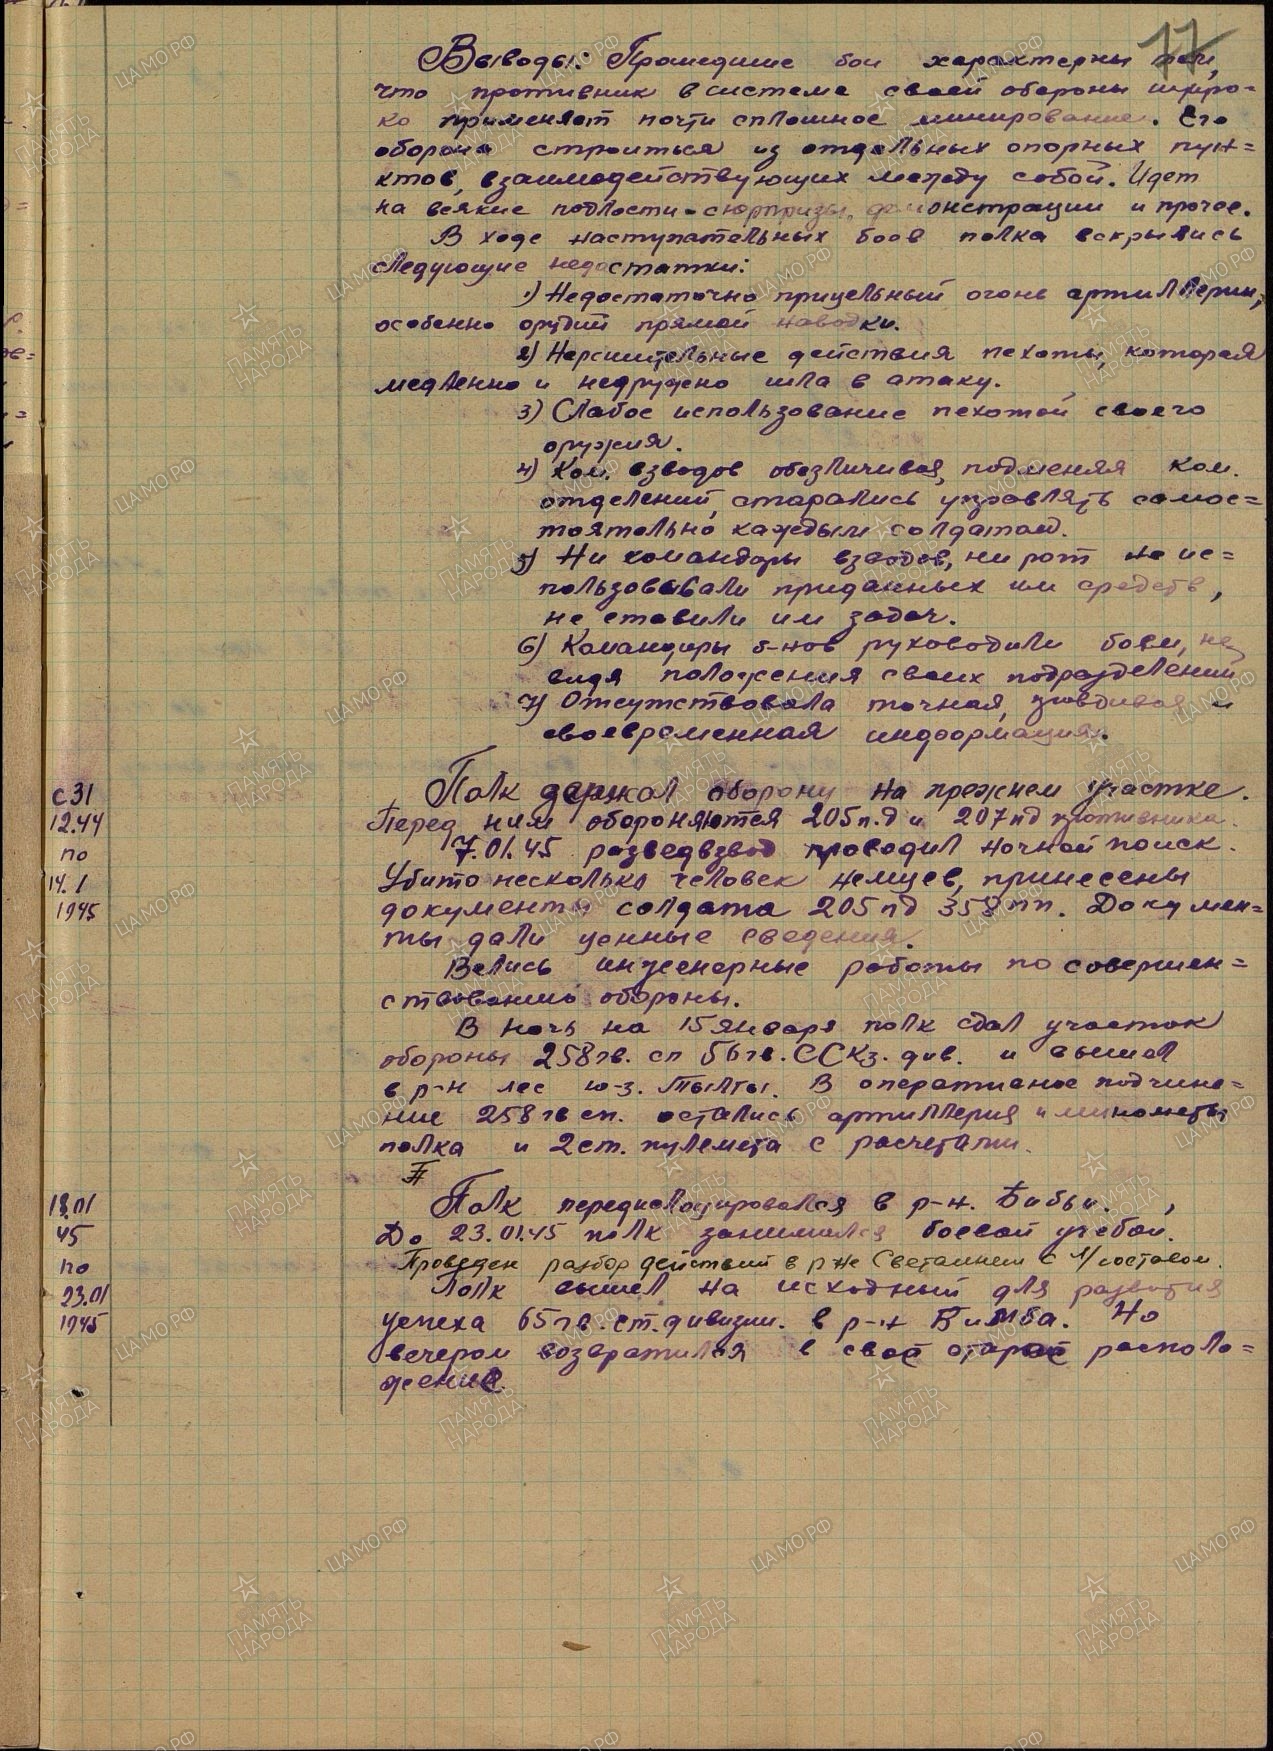 17
Выводы: Прошедшие бои характерны тем,
что противник в системе своей обороны широ=
ко применяет почти сплошное минирование. Его
оборона строиться из отдельных опорных пун=
ктов, взаимодействующих между собой. Идет
на всякие подлости - сюрпризы, демонстрации и прочее.
В ходе наступательных боев полка вскрылись
следующие недостатки:
1) Недостаточно прицельный огонь артиллерии,
особенно орудий прямой наводки.
2) Нерешительные действия пехоты, которая
медленно и недружно шла в атаку.
3) Слабое использование пехотой своего
оружия.
4) Ком. взводов обезличивая, подменяя ком.
отделений, старались управлять самос=
тоятельно каждым солдатом.
5) Ни командиры взводов, ни рот не ис=
пользовывали приданных им средств,
не ставили им задач.
6) Командиры б-нов руководили боем, не
видя положения своих подразделений
7) Отсутствовала точная, правдивая и
своевременная информация.
с 31
12.44
по
14.1
1945
Полк держал оборону на прежнем участке.
Перед ним обороняются 205 п.д и 207 пд противника.
7.01.45 разведвзвод проводил ночной поиск.
Убито несколько человек немцев, принесены
документы солдата 205 пд 358 пп. Докумен=
ты дали ценные сведения.
Велись инженерные работы по совершен=
ствованию обороны.
В ночь на 15 января полк сдал участок
обороны 258 гв. сп 56 гв. ССКз. див. и вышел
в р-н лес ю-з. Тылты. В оперативное подчине=
ние 258 гв сп. остались артиллерия и минометы
полка и 2 ст. пулемета с расчетами.
18.01
45
по
23.01
1945
Полк передислоцировался в р-н. Бибьи.
До 23.01.45 полк занимался боевой учебой.
Проведен разбор действий в р-не Светаини с л/составом.
Полк вышел на исходный для развития
успеха 65 гв. ст. дивизии. в р-н Бимба. Но
вечером возвратился в свое старое располо=
жение
ЦАМО.РФ
ПАМЯТЬ
НАРОДА